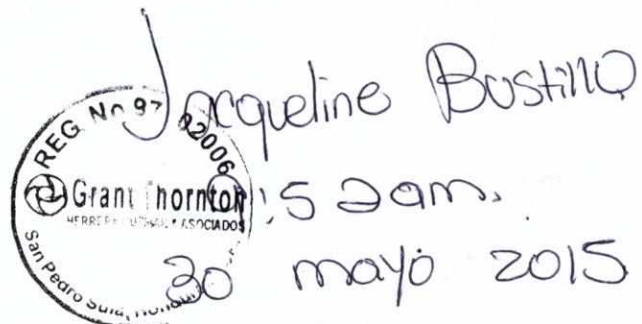 Jacqueline Bustillo
REG No 97 02006
Grant Thornton
ASOCIADOS
:52am.
San Pedro Sula, Hondu
30 mayo 2015